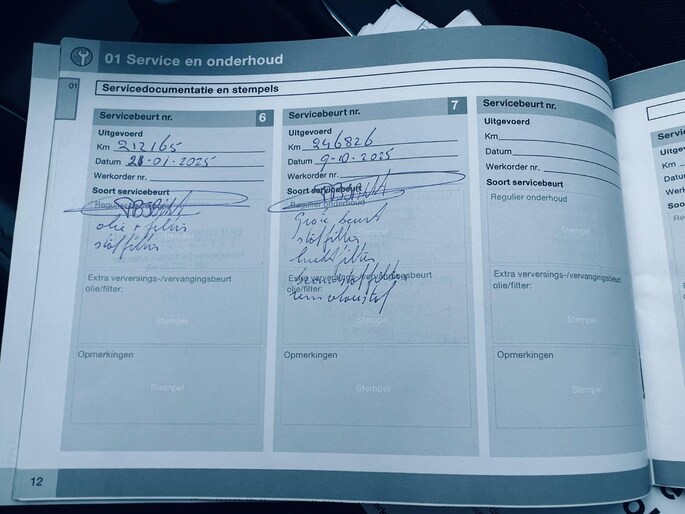 01 Service en onderhoud
01
Servicedocumentatie en stempels
Servicebeurt nr. 6
Uitgevoerd
Km 212165
Datum 28-01-2025
Werkorder nr.
Soort servicebeurt
Regulier onderhoud
olie + filtris
stoffilter
Extra verversings-/vervangingsbeurt
olie/filter:
Stempel
Opmerkingen
Stempel
Servicebeurt nr. 7
Uitgevoerd
Km 246826
Datum 9-10-2025
Werkorder nr.
Soort servicebeurt
Regulier onderhoud
Grote beurt
stoffilter
luchtfilter
Extra verversings-/vervangingsbeurt
brandstoffilter
olie/filter:
remvloeistof
Stempel
Opmerkingen
Stempel
Servicebeurt nr.
Uitgevoerd
Km
Datum
Werkorder nr.
Soort servicebeurt
Regulier onderhoud
Stempel
Extra verversings-/vervangingsbeurt
olie/filter:
Stempel
Opmerkingen
Stempel
12